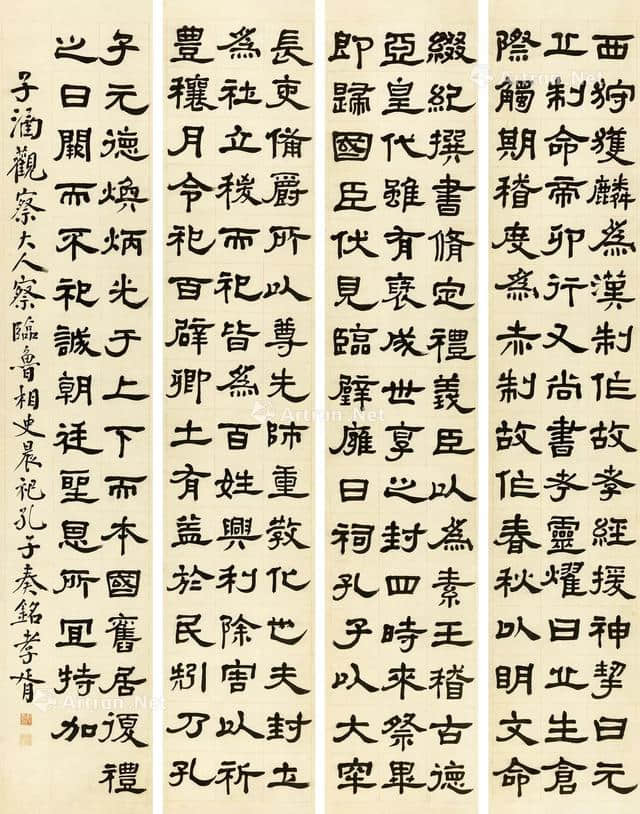 西狩獲麟為漢制作故孝經援神挈曰元
丘制命帝卯行又尚書考靈燿曰丘生倉
際觸期稽度為赤制故作春秋以明文命
綴紀撰書脩定禮義臣以為素王稽古德
亞皇代雖有褒成世享之封四時來祭畢
即歸國臣伏見臨璧廱日祠孔子以大牢
長吏備爵所以尊先師重教化也夫封土
為社立稷而祀皆為百姓興利除害以祈
豐穰月令祀百辟卿士有益於民矧乃孔
子元德煥炳光于上下而本國舊居復禮
之日闕而不祀誠朝廷聖恩所宜特加
子涵觀察大人察臨魯相史晨祀孔子奏銘孝胥
Artron.Net
Artron.Net
Artron.Net
Artron.Net